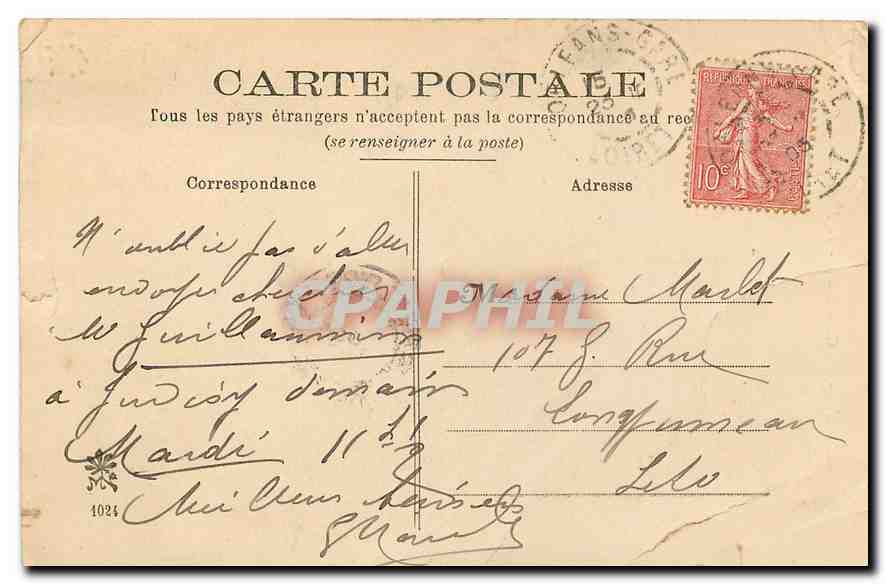 CARTE POSTALE
Tous les pays étrangers n'acceptent pas la correspondance au rec
(se renseigner à la poste)
Correspondance
Adresse
N'oublie pas d'aller
envoyer chercher
Mr Guillaumin
à Juvisy demain
Mardi 11 h 1/2
Meilleurs baisers
1024
Madame Marlet
107 G. Rue
Longjumeau
S. et O.
ORLEANS-GARE
LOIRET
REPUBLIQUE FRANÇAISE
10c
CPAPHIL